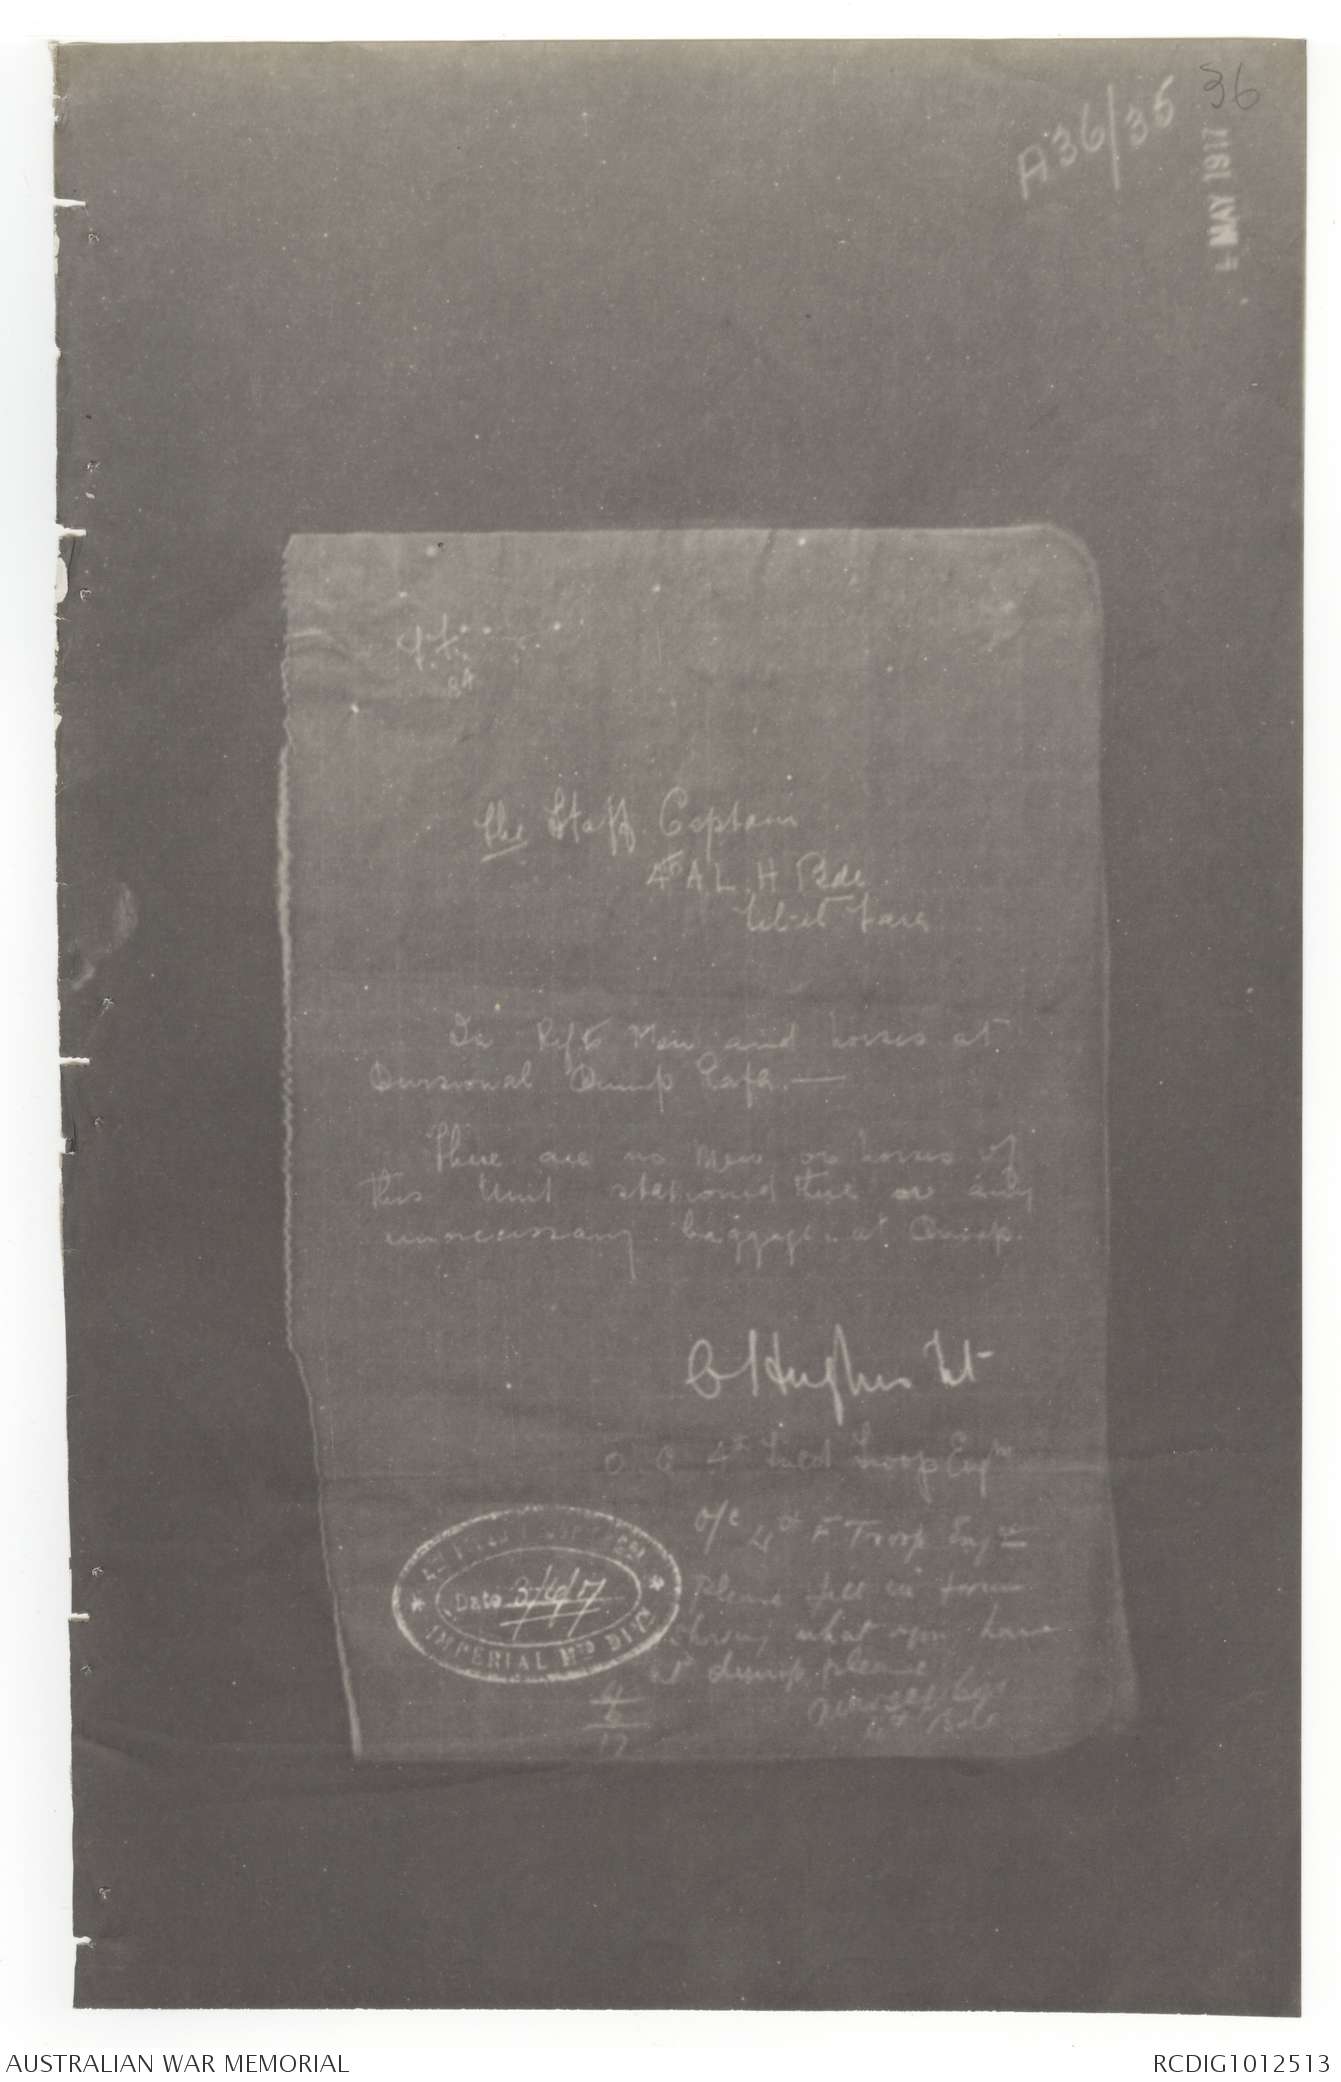 36
A36/35
MAY 1917
The Staff Captain
4th A L. H Bde
Tel-el-Fara
Men and horses at
Divisional Dump Rafa. —
There are no men or horses of
this Unit stationed there or any
unnecessary baggage at Dump.
C Hughes Lt
O. C 4th Field Troop Engrs
O/C 4th F Troop Engrs
Please fill in form
showing what you have
at dump, please
Bde
4
17
Date 3/5/17
IMPERIAL MTD DIVN
AUSTRALIAN WAR MEMORIAL
RCDIG1012513